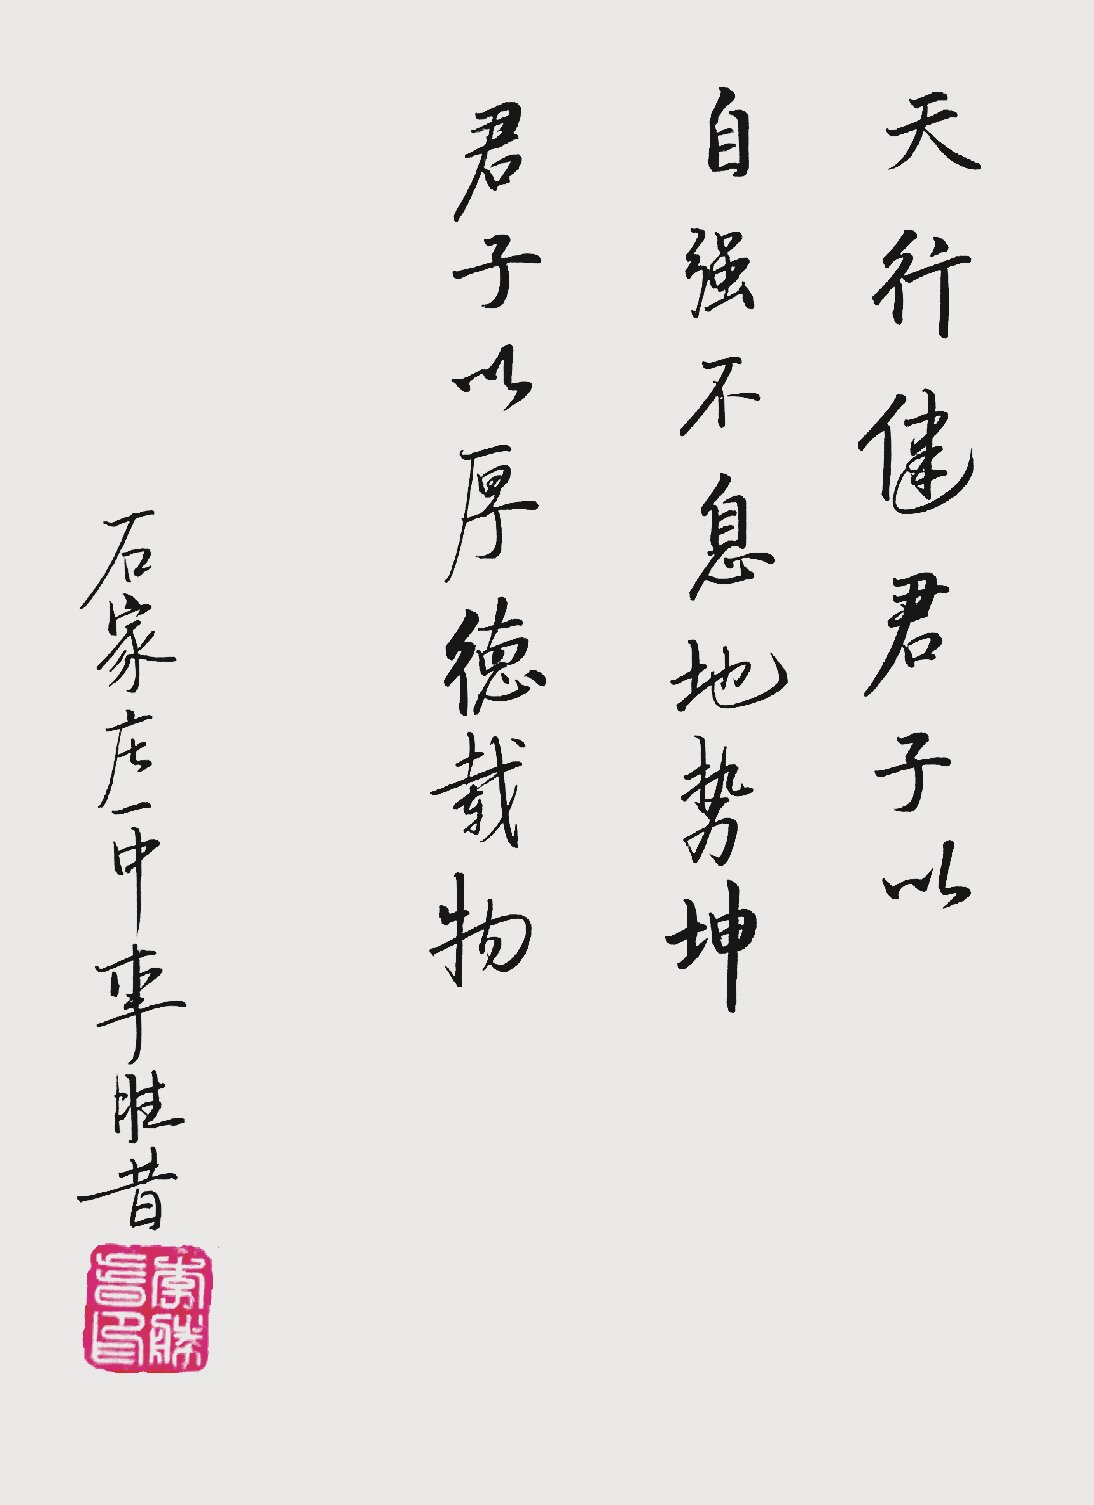 天行健君子以
自强不息地势坤
君子以厚德载物
石家庄一中李胜昔
李勝昔印